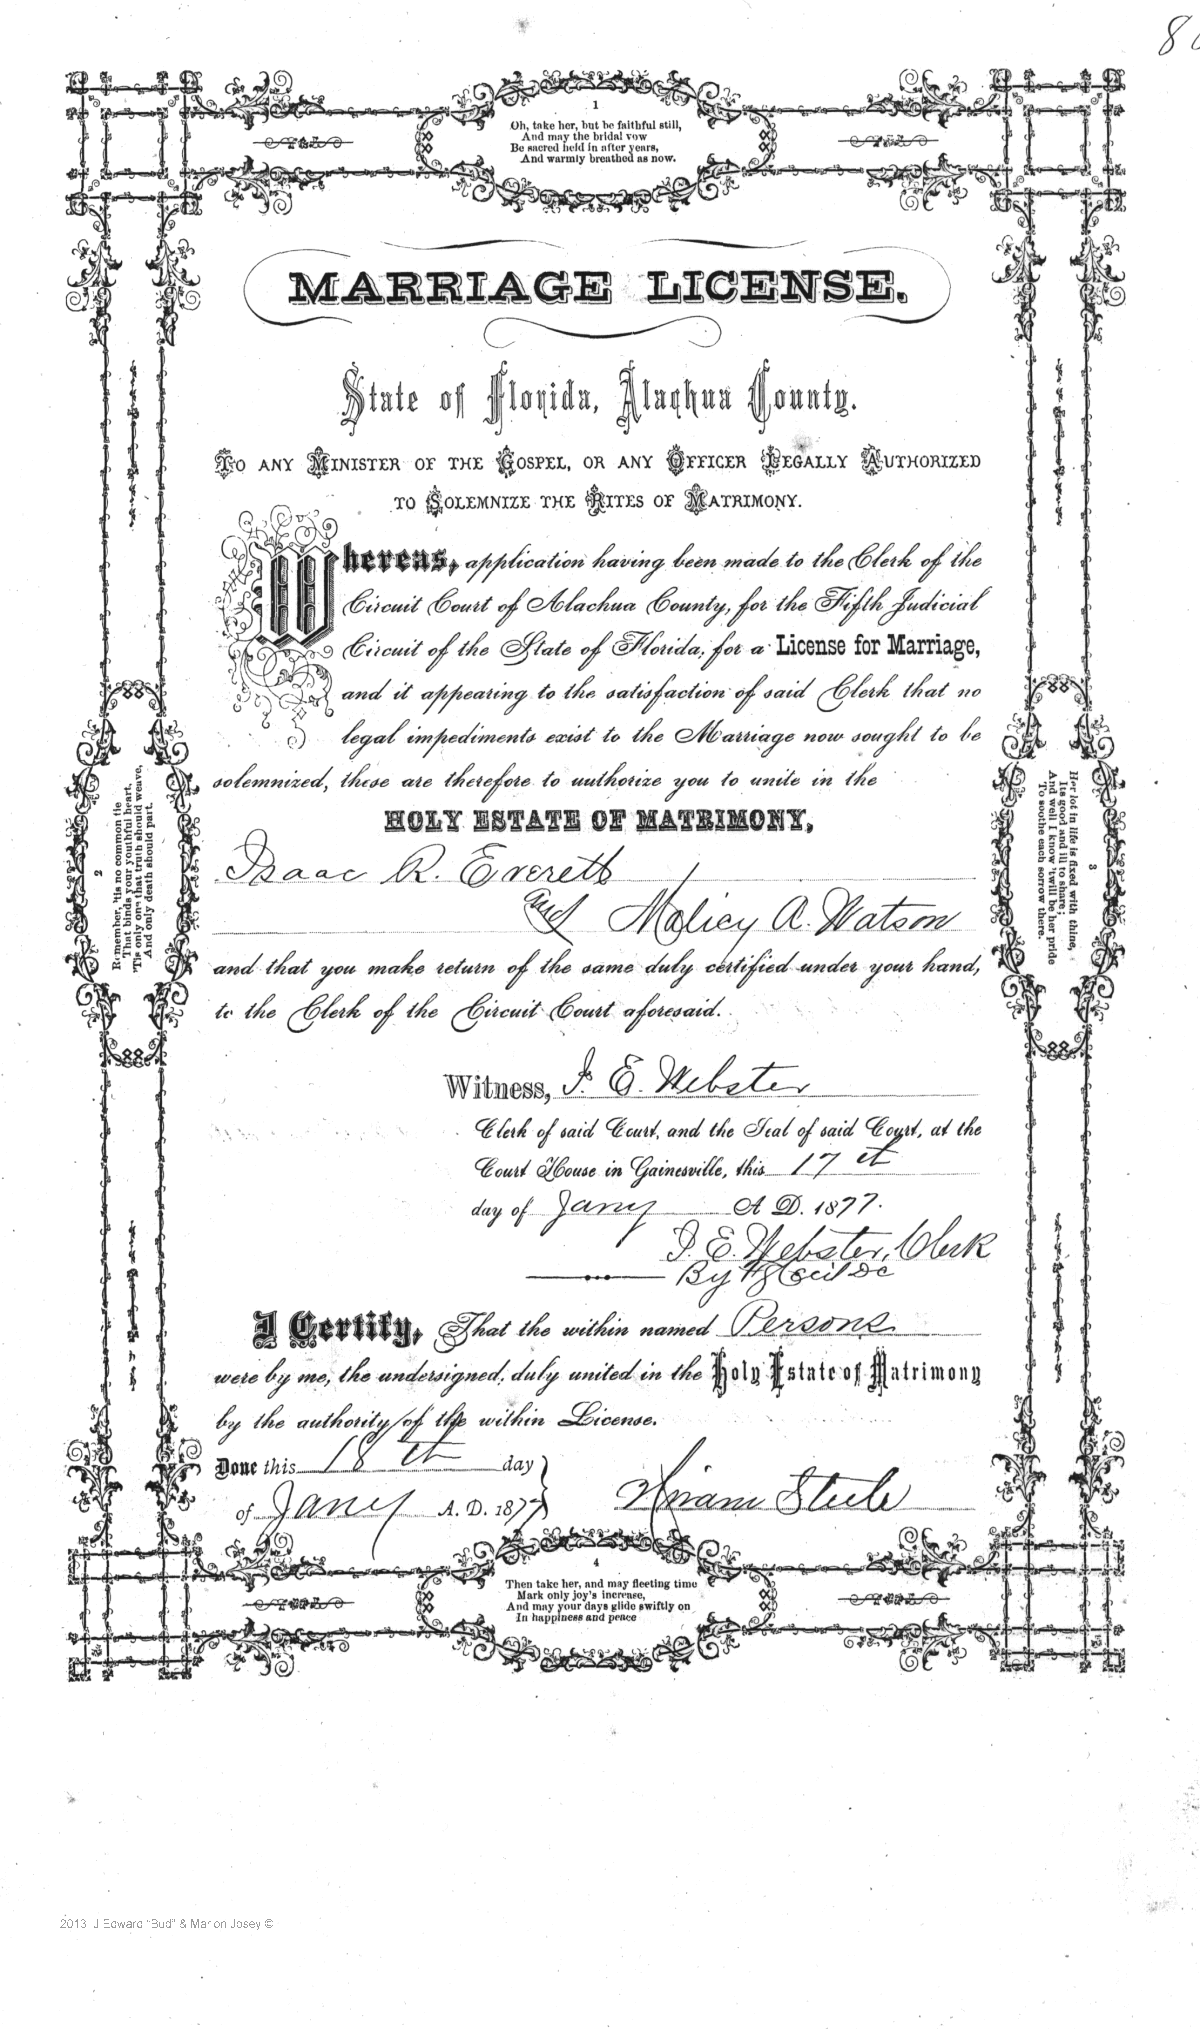 1
Oh, take her, but be faithful still,
And may the bridal vow
Be sacred held in after years,
And warmly breathed as now.
MARRIAGE LICENSE.
State of Florida, Alachua County.
TO ANY MINISTER OF THE GOSPEL, OR ANY OFFICER LEGALLY AUTHORIZED
TO SOLEMNIZE THE RITES OF MATRIMONY.
Whereas, application having been made to the Clerk of the
Circuit Court of Alachua County, for the Fifth Judicial
Circuit of the State of Florida, for a License for Marriage,
and it appearing to the satisfaction of said Clerk that no
legal impediments exist to the Marriage now sought to be
solemnized, these are therefore to authorize you to unite in the
HOLY ESTATE OF MATRIMONY,
Isaac R. Everett
and Malicy A. Watson
and that you make return of the same duly certified under your hand,
to the Clerk of the Circuit Court aforesaid.
Witness, J. E. Webster
Clerk of said Court, and the Seal of said Court, at the
Court House in Gainesville, this 17th
day of Jany A D. 1877.
J. E. Webster, Clerk
By
I Certify, That the within named Persons
were by me, the undersigned, duly united in the Holy Estate of Matrimony
by the authority of the within License.
Done this 18th day
of Jany A. D. 1877
Hiram Steele
2
Remember, 'tis no common tie
That binds your youthful heart,
'Tis only one that truth should weave,
And only death should part.
3
Her lot in life is fixed with thine,
Its good and ill to share;
And well I know 'twill be her pride
To soothe each sorrow there.
4
Then take her, and may fleeting time
Mark only joy's increase,
And may your days glide swiftly on
In happiness and peace
2013 J Edward "Bud" & Marion Josey ©